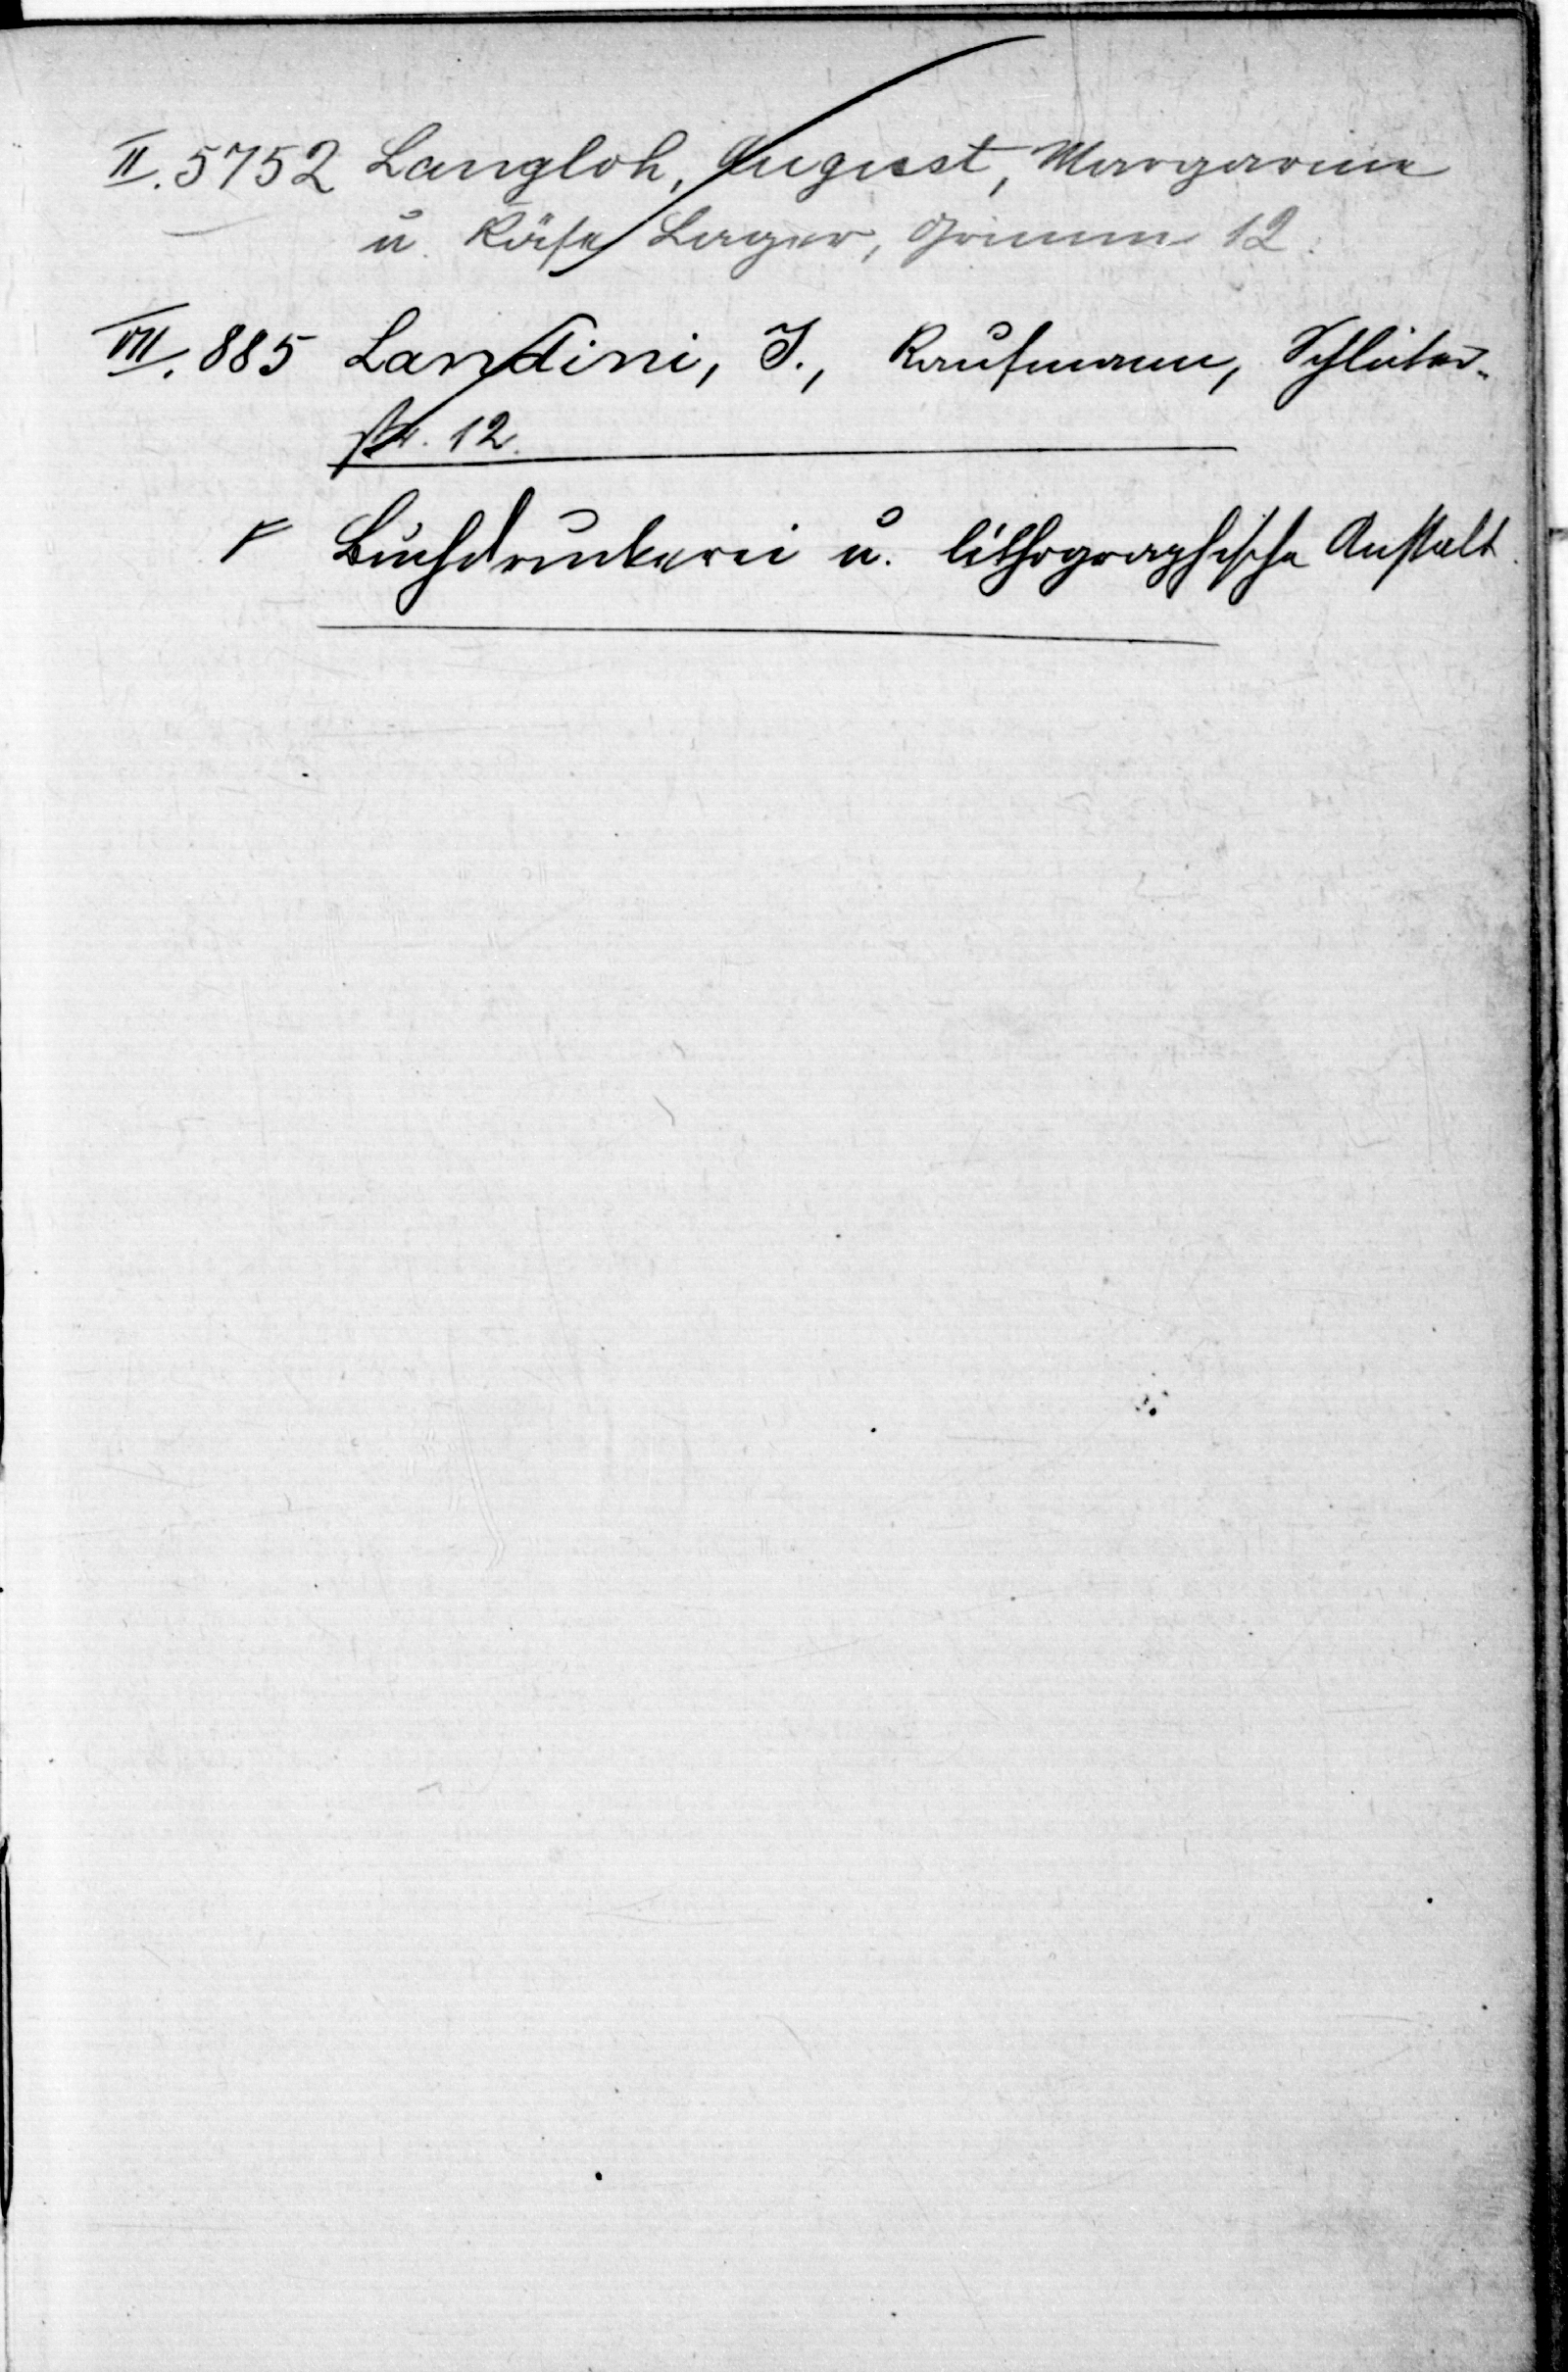 II. 5752 Langloh, August, Margarine
u. Käse Lager, Grimm 12.
VII. 885 Landini, J., Kaufmann, Schlüter-
str. 12.
Buchdruckerei u. lithographische Anstalt.